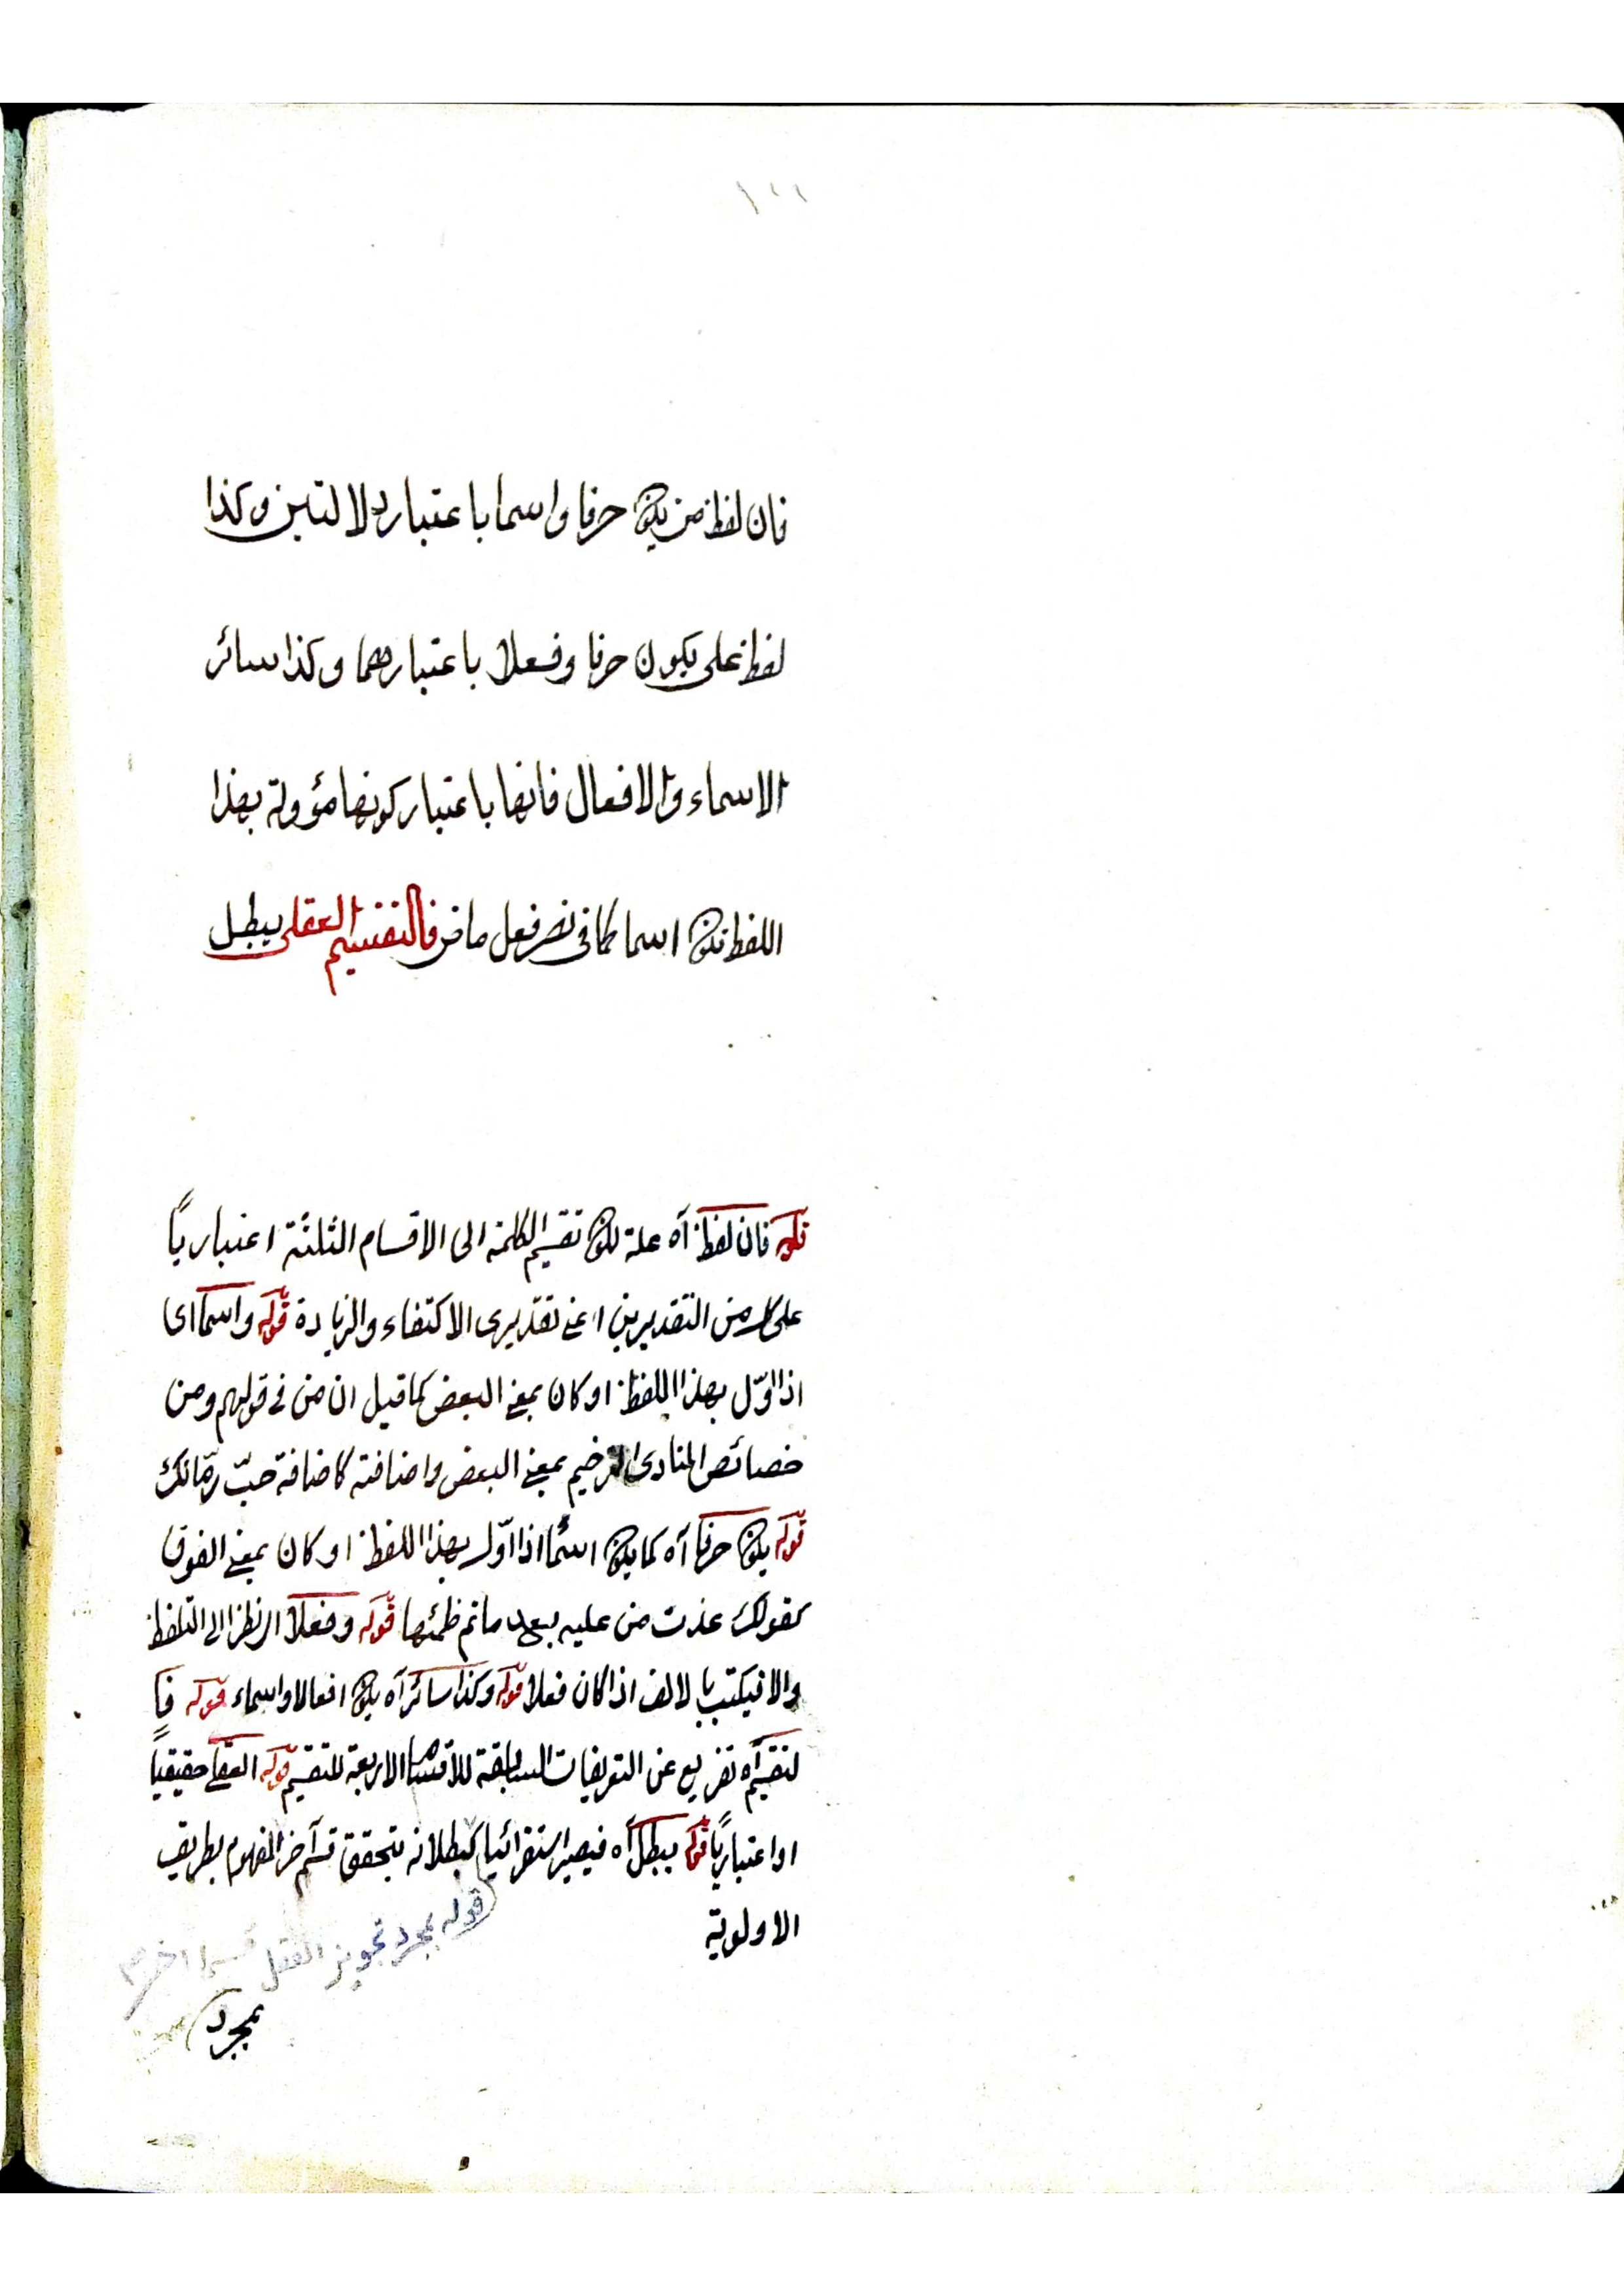 ١٢٢
فان لفظ من يكون حرفا واسما باعتبار دلالتين وكذا
لفظ على يكون حرفا وفعلا باعتبارهما وكذا سائر
الاسماء والافعال فانها باعتبار كونها مؤولة بهذا
اللفظ تكون اسما كما في نصر فعل ماض فالتقسيم العقلي يبطل
قوله فان لفظ آه علة لكون تقسيم الكلمة الى الاقسام الثلثة اعتبارياً
على كل من التقديرين اعني تقديري الاكتفاء والزيادة قوله واسما اى
اذا اوّل بهذا اللفظ او كان بمعنى البعض كما قيل ان من في قولهم ومن
خصائص المنادى الترخيم بمعنى البعض واضافته كاضافة حبّ رمّانك
قوله يكون حرفا آه كما يكون اسمًا اذا اوّل بهذا اللفظ او كان بمعنى الفوق
كقولك غدت من عليه بعد ما تم ظمئها قوله وفعلا اى نظرا الى التلفظ
والا فيكتب بالالف اذا كان فعلا قوله وكذا سائر آه يكون افعالا واسماء قوله فا
لتقسيم آه تفريع عن التعريفات السابقة للاقسام الاربعة للتقسيم قوله العقلي حقيقياً
او اعتبارياً قوله يبطل آه فيصير استقرائيا كبطلانه بتحقق قسم آخر المفهوم بطريق
الاولوية
قوله بمجرد تجويز العقل قسما آخر
بمجرد